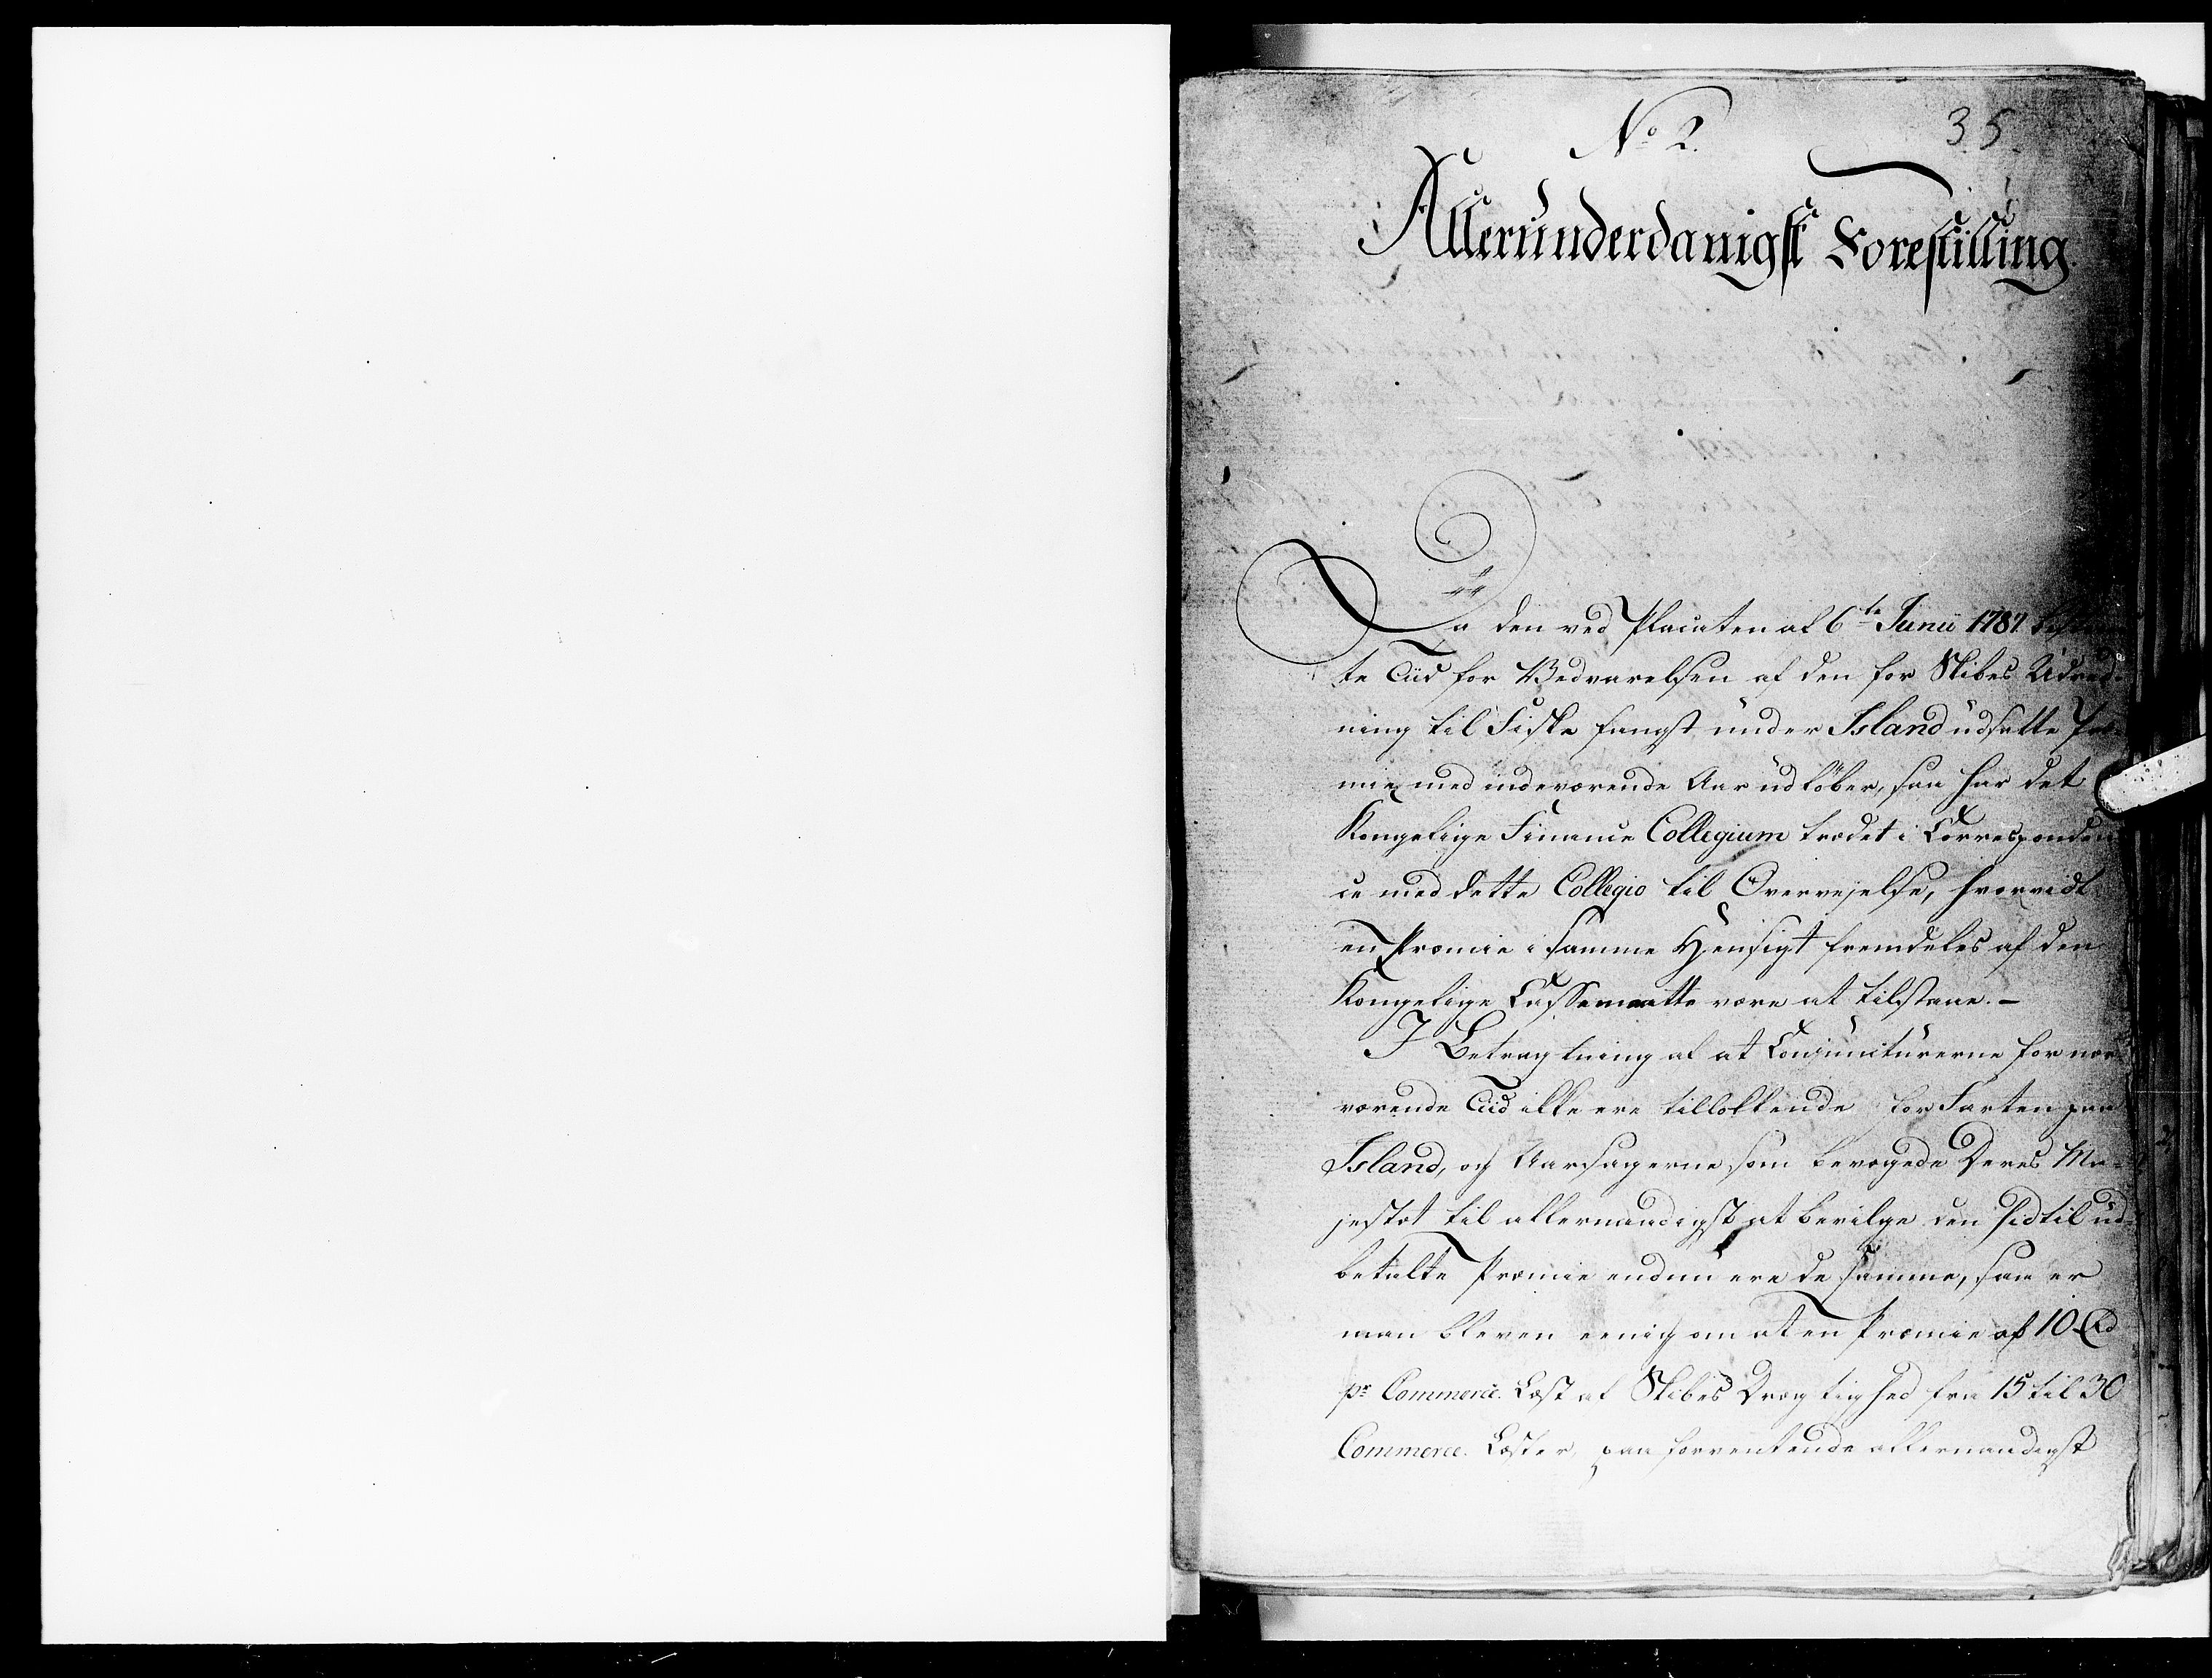 No 2.
35.
Allerunderdanigst Forestilling.
Da den ved Placaten af 6te Junii 1787
te Tiid for Vedvarelsen af den for Skibes Udred-
ning til Fiske fangst under Island udsatte Præ-
mie med indeværende Aar udløber, saa har det
Kongelige Finance Collegium trædet i Corresponden-
ce med dette Collegio til Overvejelse, hvorvidt
en Præmie i samme Hensigt fremdeles af den
Kongelige Casse maatte være at tilstaae. -
I Betragtning af at Conjuncturerne for nær-
værende Tiid ikke ere tillokkende for Farten paa
Island, og Aarsagerne som bevægede Deres Ma-
jestæt til allernaadigst at bevilge den hidtil ud-
betalte Præmie endnu ere de samme, saa er
man bleven eenig om at en Præmie af 10 Rd
pr Commerce. Læst af Skibes Drægtighed fra 15 til 30
Commerce. Læster, paa forventende allernaadigst